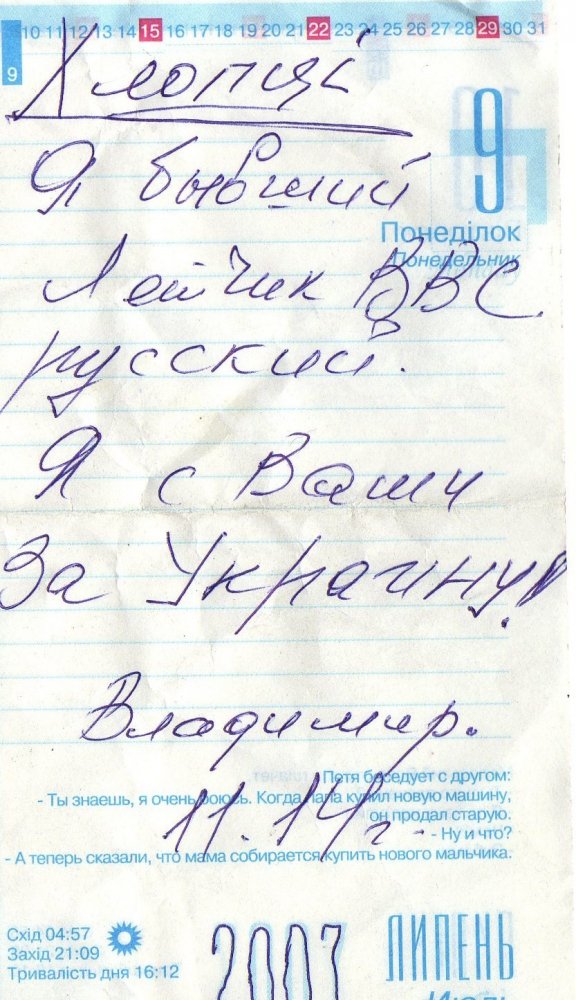 10 11 12 13 14 15 16 17 18 19 20 21 22 23 24 25 26 27 28 29 30 31
9
Хлопці
9
Я бывший
Понеділок
Понедельник
Летчик ВВС
русский.
Я с Вами
За Украину!
Владимир.
Петя беседует с другом:
- Ты знаешь, я очень боюсь. Когда папа купил новую машину,
он продал старую.
11.14г.
- Ну и что?
- А теперь сказали, что мама собирается купить нового мальчика.
Схід 04:57
Захід 21:09
Тривалість дня 16:12
2007
ЛИПЕНЬ
Июль